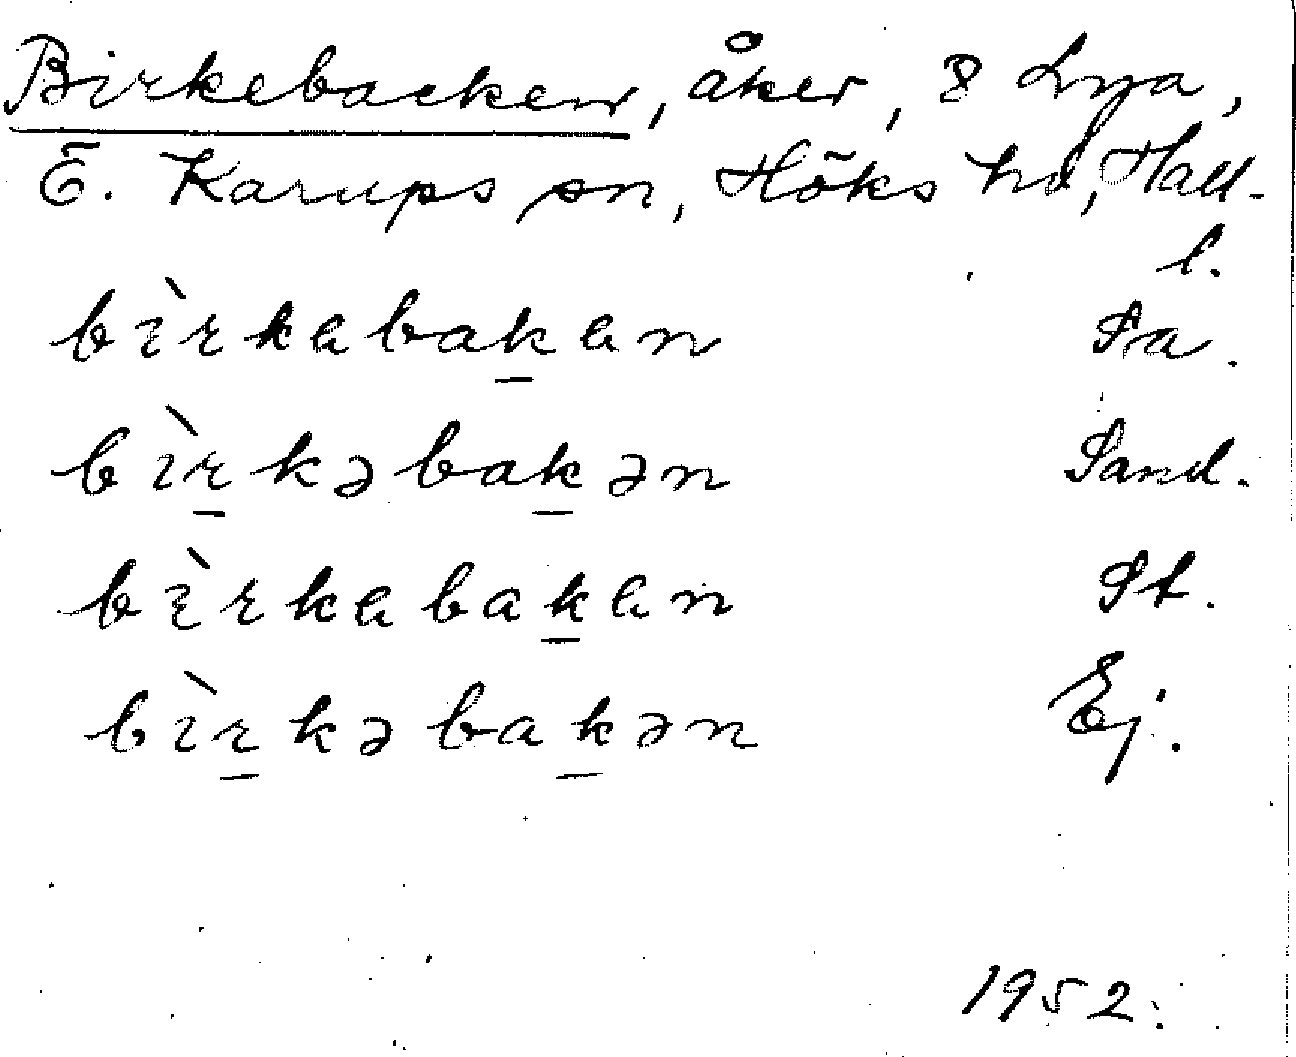 Birkebacken, åker, 8 Lya,
Ö. Karups sn, Höks hd, Hall-
l.
bìrkebaḵen Pa.
bìṟkəbaḵən Sand.
bìrkebaḵen St.
bìṟkəbaḵən Ej.
1952.